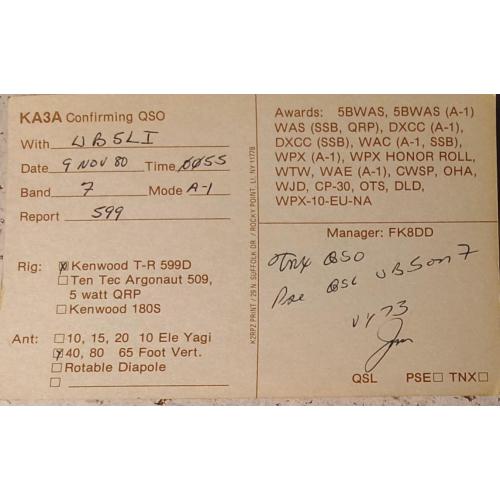 KA3A Confirming QSO
With UB5LI
Date 9 NOV 80 Time 0055
Band 7 Mode A-1
Report 599
Rig: Kenwood T-R 599D
Ten Tec Argonaut 509,
5 watt QRP
Kenwood 180S
Ant: 10, 15, 20 10 Ele Yagi
40, 80 65 Foot Vert.
Rotable Diapole
K2RPZ PRINT / 29 N. SUFFOLK DR / ROCKY POINT, L.I., NY 11778
Awards: 5BWAS, 5BWAS (A-1)
WAS (SSB, QRP), DXCC (A-1),
DXCC (SSB), WAC (A-1, SSB),
WPX (A-1), WPX HONOR ROLL,
WTW, WAE (A-1), CWSP, OHA,
WJD, CP-30, OTS, DLD,
WPX-10-EU-NA
Manager: FK8DD
TNX QSO
Pse QSL UB5 on 7
VY 73
Jim
QSL PSE TNX